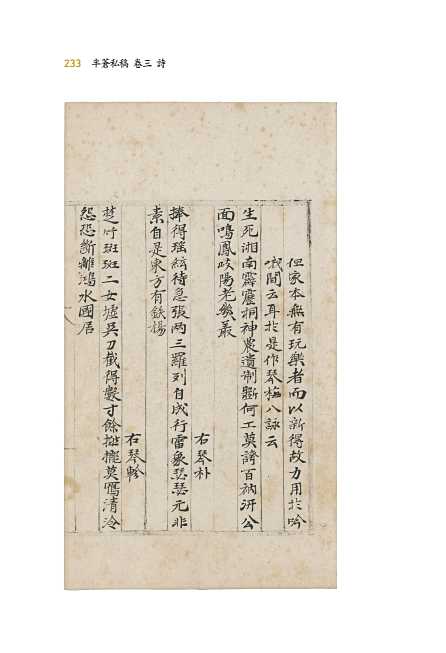 233 半蒼私稿 卷三 詩
但家本無有玩樂者而以新得故力用於吟
哦間云耳於是作琴八詠云
生死湘南霹靂桐神農遺制斲何工莫誇百衲汧公
面鳴鳳岐陽老幾叢
右琴朴
捧得瑤絃待急張兩三羅列自成行雷象瑟瑟元非
素自是東方有鉄楊
右琴軫
楚竹斑斑二女墟吳刀截得數寸餘莫清泠
怨恐斷離鴻水國居